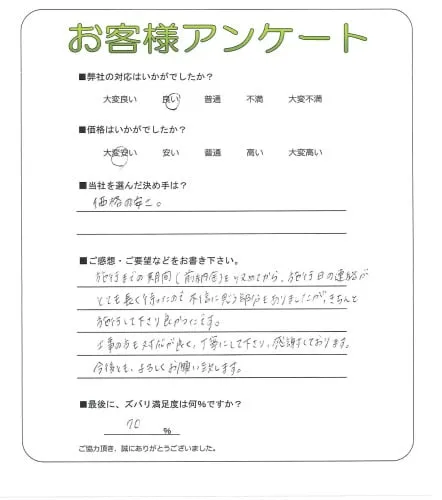 お客様アンケート
■弊社の対応はいかがでしたか?
大変良い 良い 普通 不満 大変不満
■価格はいかがでしたか?
大変安い 安い 普通 高い 大変高い
■当社を選んだ決め手は?
価格の安さ。
■ご感想・ご要望などをお書き下さい。
施行までの期間(前納金)を収めてから、施行日の連絡が
とても長く待ったので不信に思う部分もありましたが、きちんと
施行して下さり良かったです。
工事の方も対応が良く、丁寧にして下さり、感謝しております。
今後とも、よろしくお願い致します。
■最後に、ズバリ満足度は何%ですか?
70 %
ご協力頂き、誠にありがとうございました。